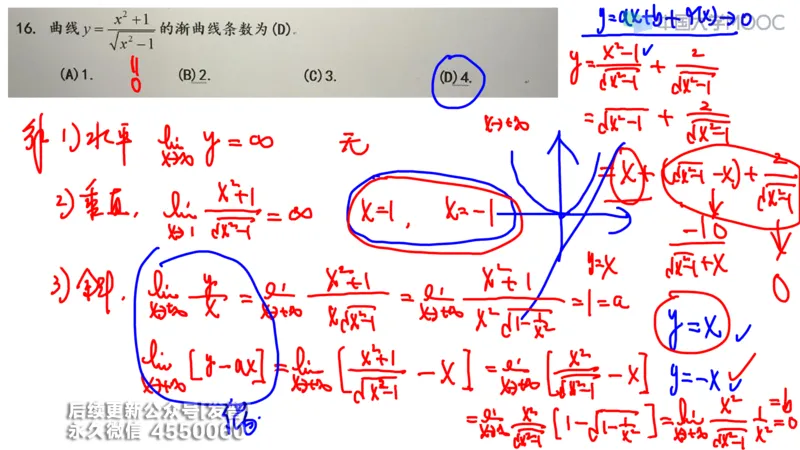 16. 曲线 y = \frac{x^2+1}{\sqrt{x^2-1}} 的渐曲线条数为(D)。
(A)1. (B)2. (C)3. (D)4.
0
中国大学MOOC
y = ax+b+α(x)→0
y = \frac{x^2-1}{\sqrt{x^2-1}} + \frac{2}{\sqrt{x^2-1}}
= \sqrt{x^2-1} + \frac{2}{\sqrt{x^2-1}}
x→+∞
= x + (\sqrt{x^2-1} - x) + \frac{2}{\sqrt{x^2-1}}
\frac{-1}{\sqrt{x^2-1}+x} 0
0
y=x
y = x ✓
y = -x ✓
解 1) 水平 \lim_{x→∞} y = ∞ 无
2) 垂直, \lim_{x→1} \frac{x^2+1}{\sqrt{x^2-1}} = ∞ x=1, x=-1
3) 斜, \lim_{x→+∞} \frac{y}{x} = \lim_{x→+∞} \frac{x^2+1}{x\sqrt{x^2-1}} = \lim_{x→+∞} \frac{x^2+1}{x^2\sqrt{1-\frac{1}{x^2}}} = 1 = a
\lim_{x→+∞} [y-ax] = \lim_{x→+∞} [\frac{x^2+1}{\sqrt{x^2-1}} - x] = \lim_{x→+∞} [\frac{x^2}{\sqrt{x^2-1}} - x]
= \lim_{x→+∞} \frac{x^2}{\sqrt{x^2-1}} [1-\sqrt{1-\frac{1}{x^2}}] = \lim_{x→+∞} \frac{x^2}{\sqrt{x^2-1}} \frac{1}{x^2} = 0 = b
后续更新公众号[发学
永久微信 4550060